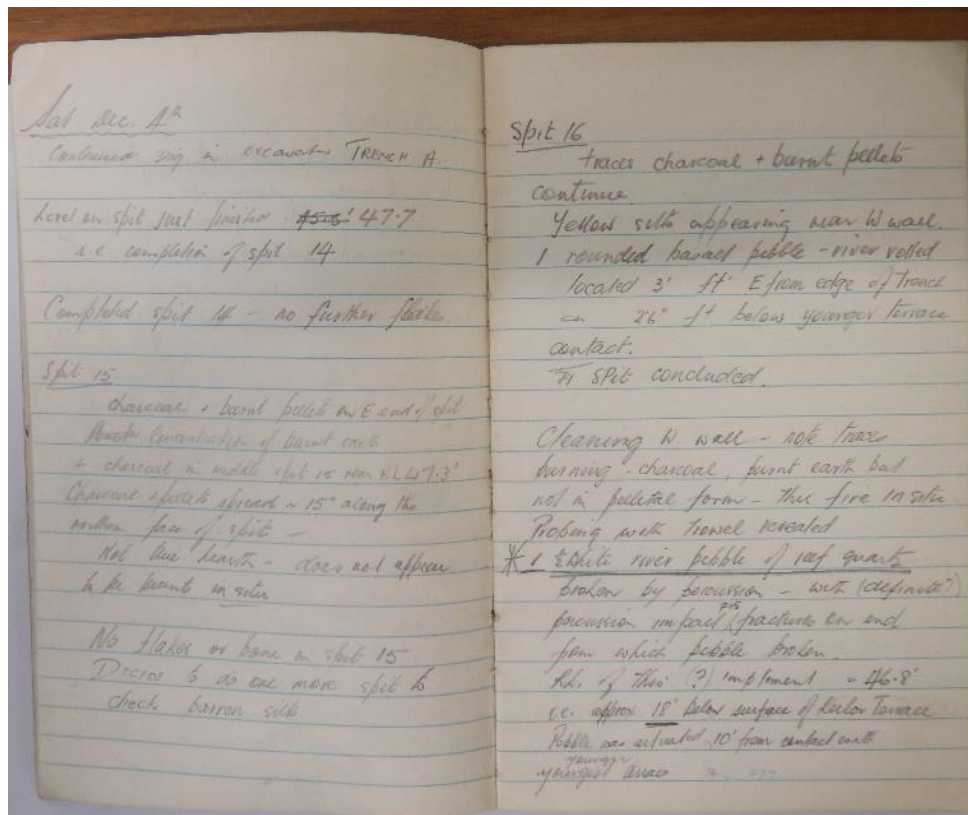 Sat Dec. 4th
Continued Dig in excavation TRENCH A.
Level on spit just finished 45.6' 47.7
i.e. completion of spit 14
Completed spit 14 - no further flakes
Spit 15
charcoal + burnt pellets on E end of spit
Concentration of burnt earth
+ charcoal in middle spit 15 near R.L. 47.3'
Charcoal + pellets spread ~ 15" along the
face of spit -
Not true hearth - does not appear
to be burnt in situ
No flakes or bone in spit 15
Decide to do one more spit to
check barren silts
Spit 16
traces charcoal + burnt pellets
continue.
Yellow silts appearing near W wall.
1 rounded basalt pebble - river rolled
located 3' ft' E from edge of Trench
2'6" ft below younger terrace
contact.
SPit concluded.
Cleaning W wall - note traces
burning - charcoal, burnt earth but
not in pelletal form - thus fire in situ
Probing with trowel revealed
* 1 White river pebble of reef quartz
broken by percussion - with (definite?)
percussion impact fractures on end
from which pebble broken.
R.L. of this (?) implement = 46.8'
i.e. approx 18' below surface of Keilor Terrace
Pebble was situated 10' from contact with
younger
youngest terrace